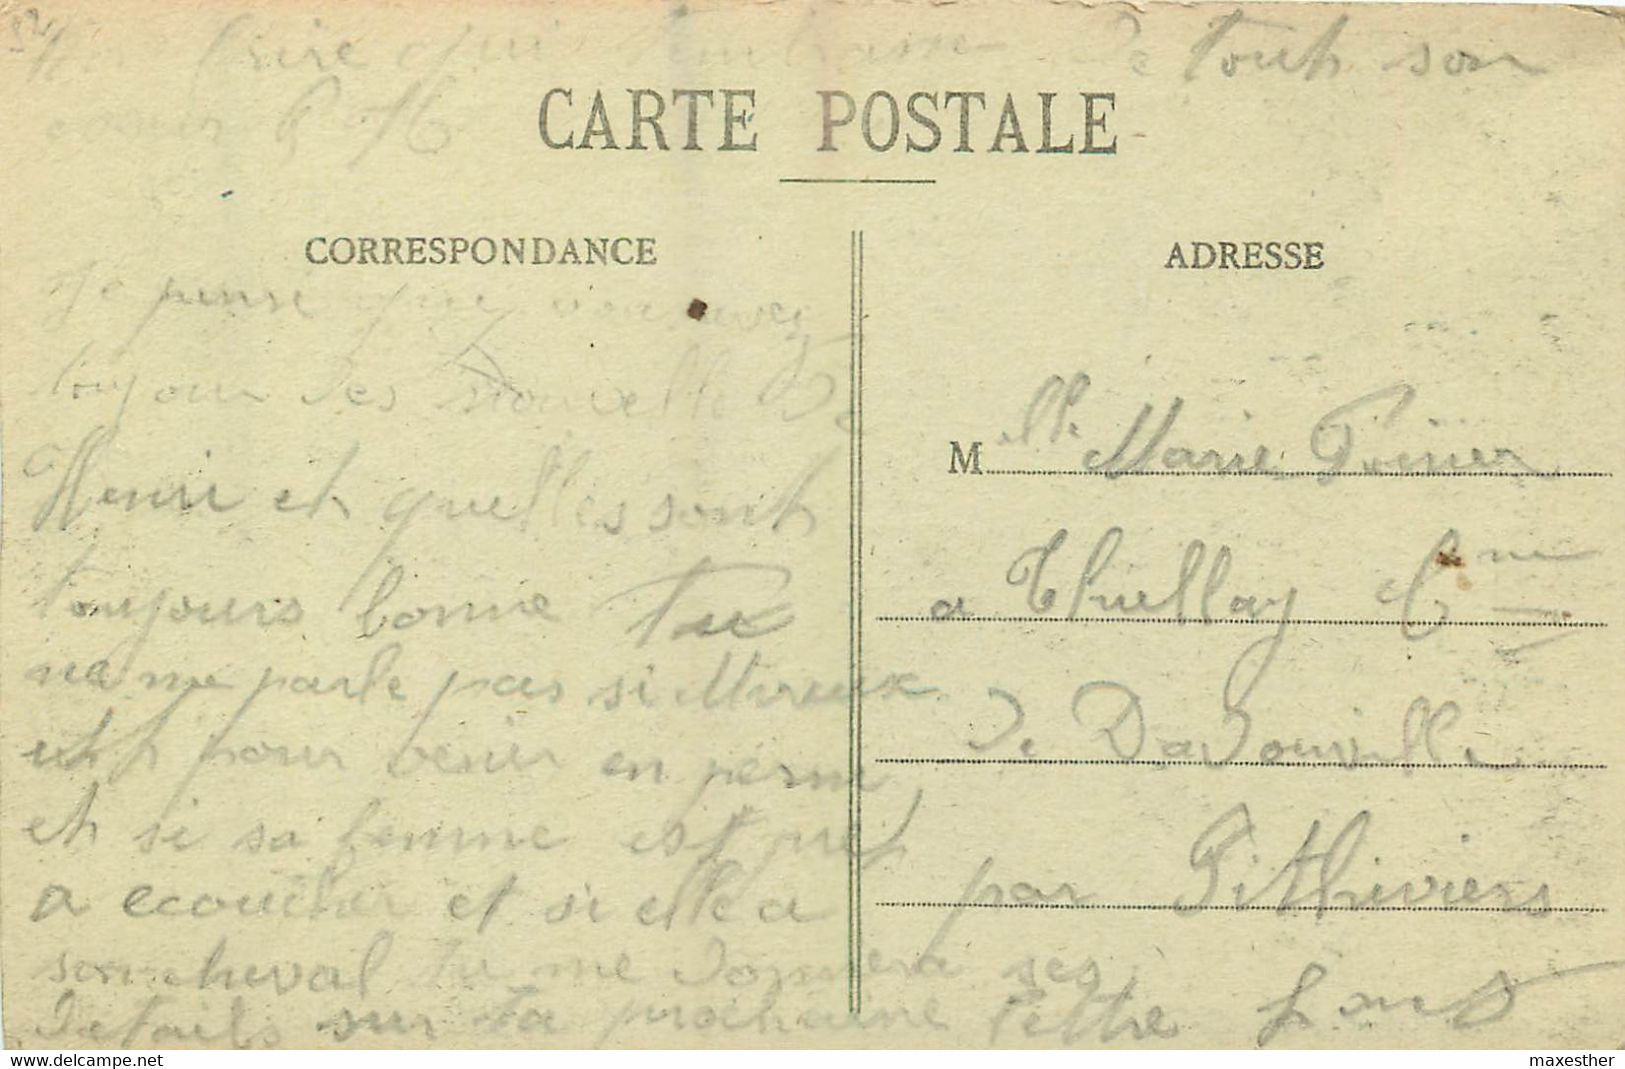 Ton frère qui t'embrasse de touh son
coeur P H
CARTE POSTALE
CORRESPONDANCE
Je pense que vous avez
toujour des Nouvelle de
Henri eh quelles sonh
toujours bonne Tu
na me parle pas si Mireux
est pour venir en perm
eh si sa femme est preh
a ecouche et si elle a
son cheval tu me donnera ses
details sur ta prochaine lettre
ADRESSE
Melle Marie Poirier
a Thuellay Cne
de Dadonville
par Pithiviers
maxesther